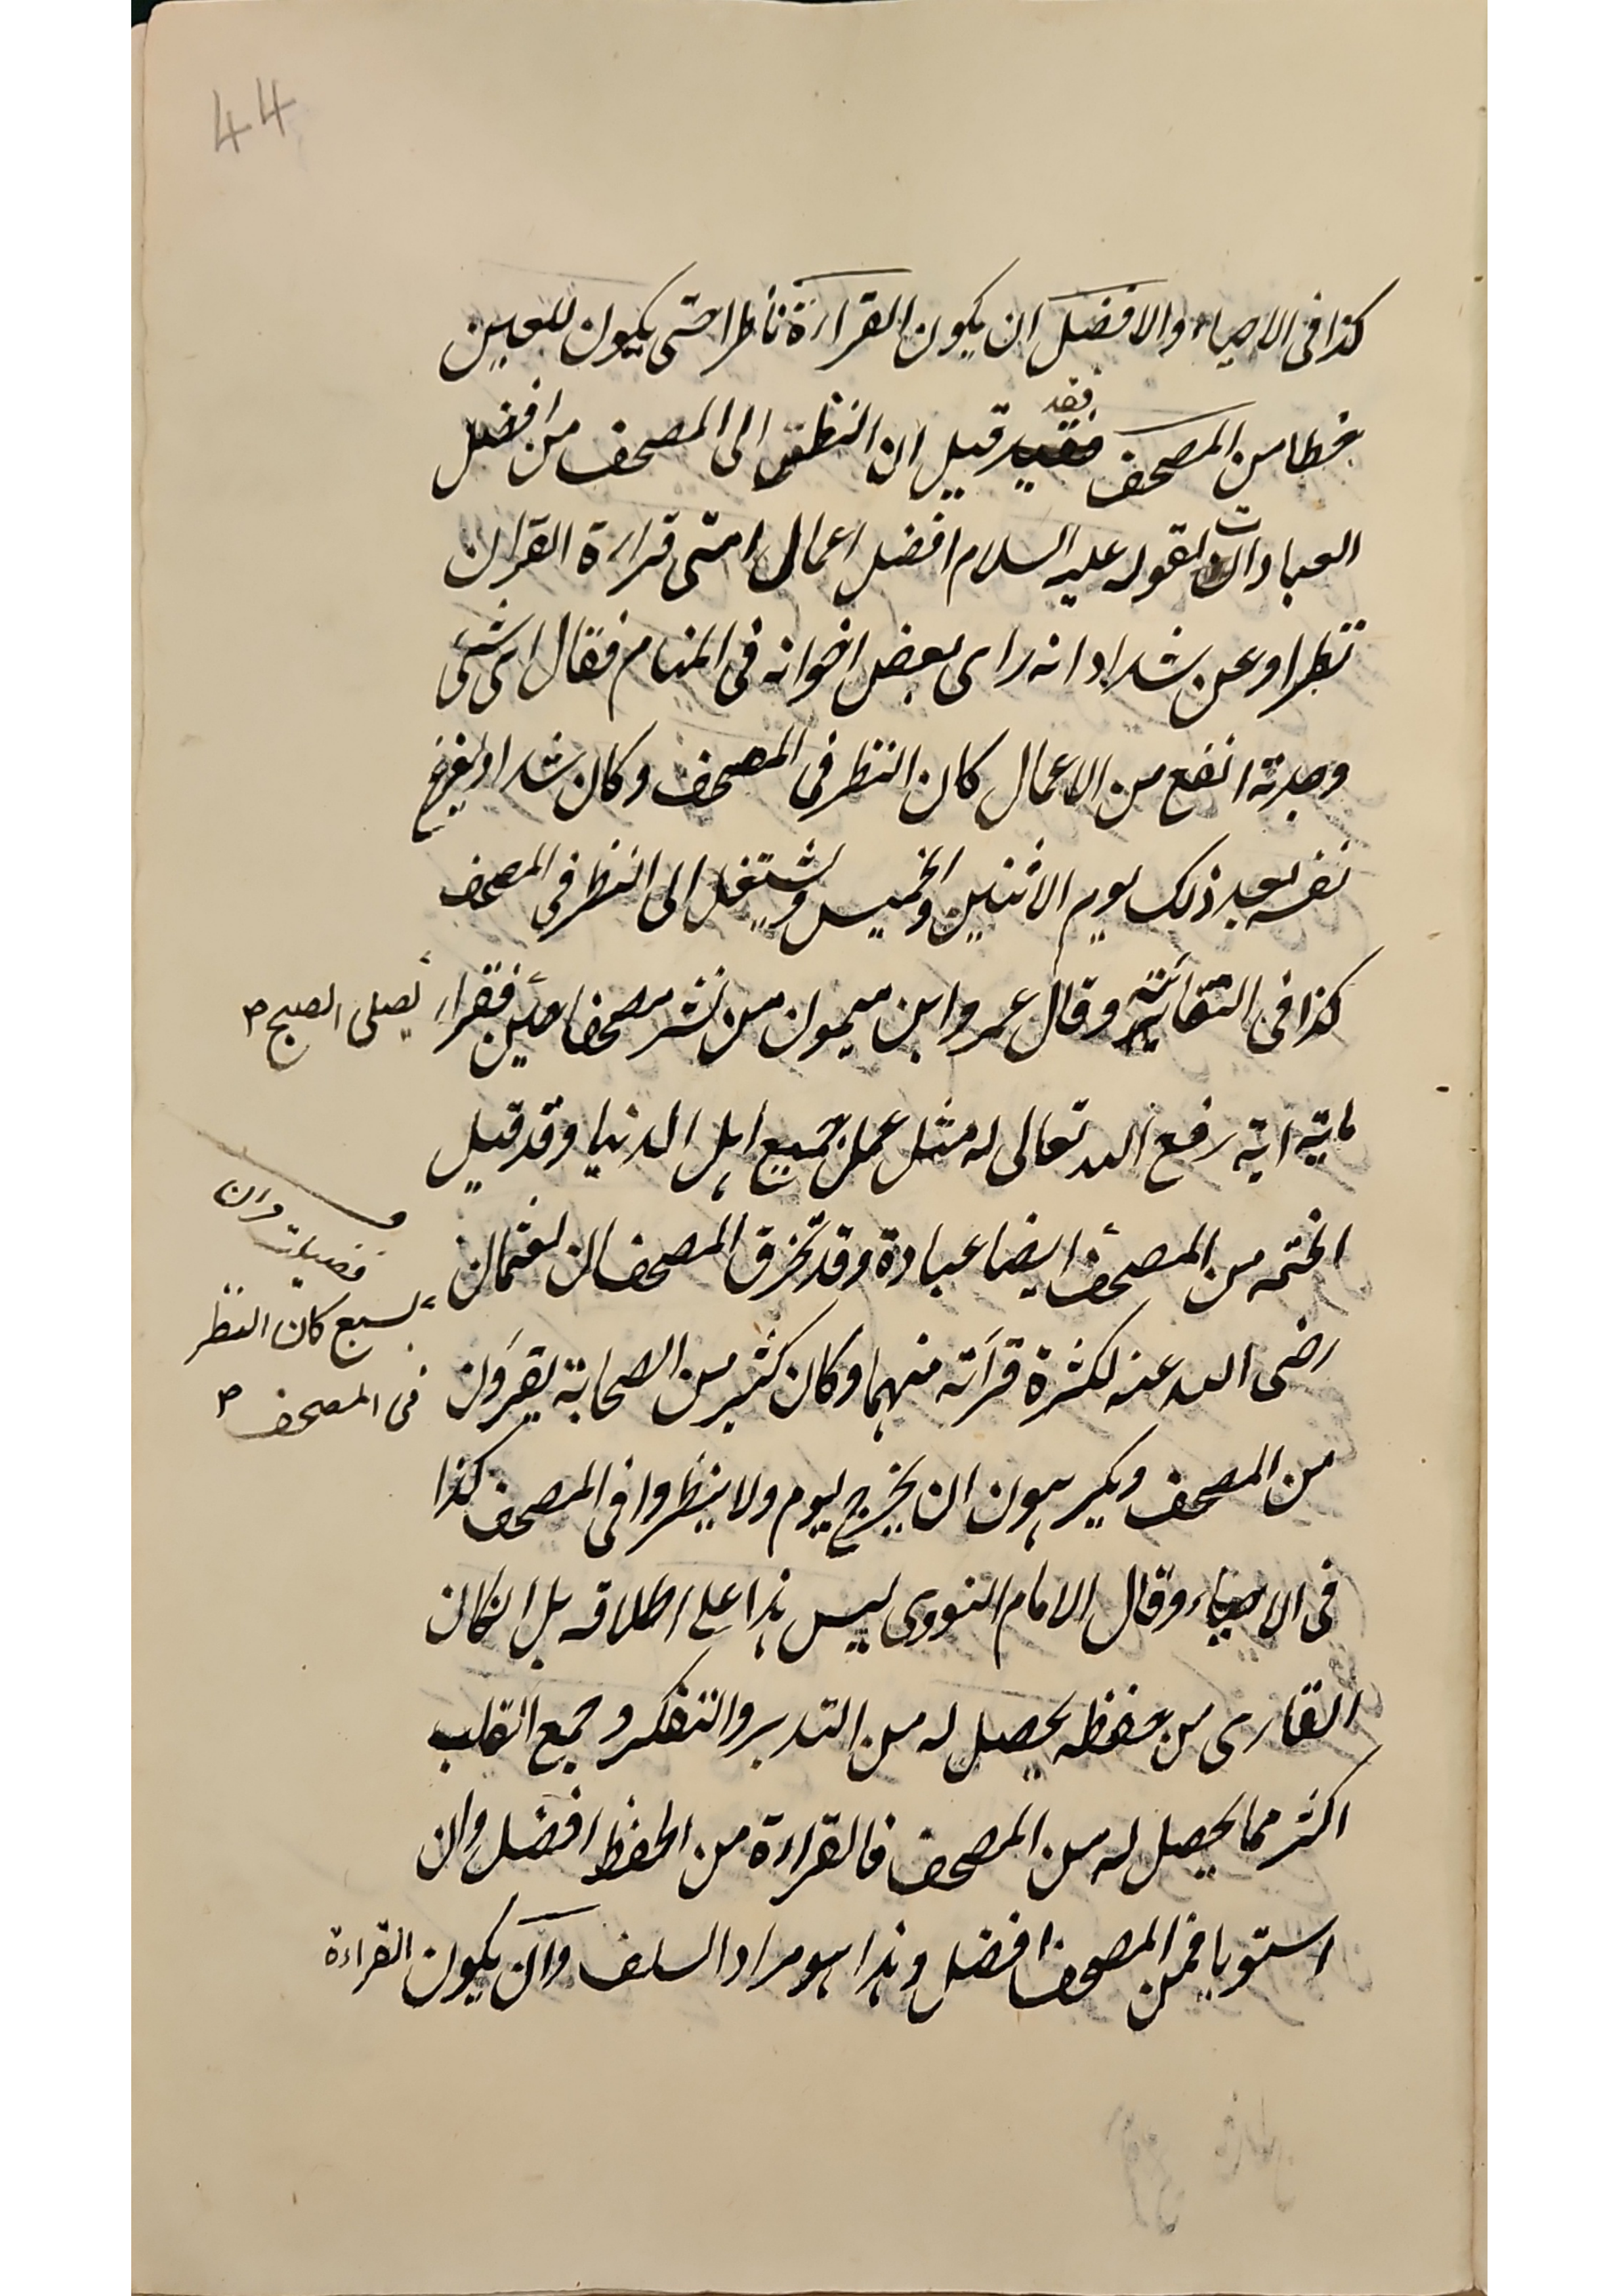 44
كذا فى الاحياء والافضل ان يكون القراءة ناظرا حتى يكون للعين
خطا من المصحف فقد قيل ان النظر الى المصحف من افضل
العبادات لقوله عليه السلام افضل اعمال امتى قراءة القران
نظرا وعن شداد انه راى بعض اخوانه فى المنام فقال اى شئ
وجدته انفع من الاعمال كان النظر فى المصحف وكان شداد يفرغ
نفسه بعد ذلك يوم الاثنين والخميس ويشتغل الى النظر فى المصحف
كذا فى وقال عمرو ابن ميمون من نشر مصحفا حين فقراء
يصلى الصبح
ماية اية رفع الله تعالى له مثل عمل جميع اهل الدنيا وقد قيل
الختمه من المصحف ايضا عبادة وقد تخرق المصحفان لعثمان
فضيلت قران
بسبع كان النظر
فى المصحف
رضى الله عنه لكثرة قرأته منهما وكان كثير من الصحابة يقرؤن
من المصحف ويكرهون ان يخرج يوم ولا ينظروا فى المصحف كذا
فى الاحياء وقال الامام النووى ليس هذا على اطلاقه بل انكان
القارى من حفظه يحصل له من التدبر والتفكر وجمع القلب
اكثر مما يحصل له من المصحف فالقراءة من الحفظ افضل وان
استويا فمن المصحف افضل وهذا هو مراد السلف وان يكون القراءة